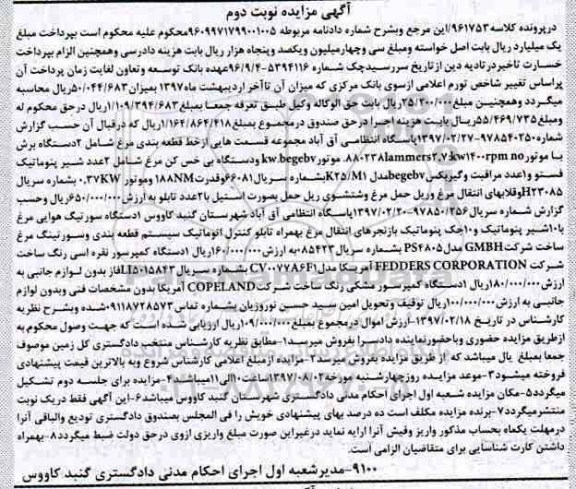 آگهی مزایده نوبت دوم
درپرونده کلاسه۹۶۱۷۵۳/۱این مرجع وبشرح شماره دادنامه مربوطه ۹۶۰۹۹۷۱۷۹۹۰۰۱۰۰۵محکوم علیه محکوم است بپرداخت مبلغ
یک میلیارد ریال بابت اصل خواسته ومبلغ سی وچهارمیلیون ویکصد وپنجاه هزار ریال بابت هزینه دادرسی وهمچنین الزام بپرداخت
خسارت تاخیردرتادیه دین از تاریخ سررسیدچک شماره ۵۳۹۴۱۱۶-۹۶/۹/۴عهده بانک توسعه وتعاون لغایت زمان پرداخت آن
براساس تغییر شاخص تورم اعلامی ازسوی بانک مرکزی که میزان آن تاآخر اردیبهشت ماه ۱۳۹۷ بمیزان۵۰/۰۴۴/۶۸۳ریال محاسبه
میگردد وهمچنیـن مبلغ۳۵/۲۰۰/۰۰۰ریال بابت حق الوکاله وکیل طبق تعرفه جمعـا بمبلغ۱/۱۰۹/۳۹۴/۶۸۳ریال درحق محکوم له
ومبلغ ۵۵/۴۶۹/۷۳۵ریـال بابـت هزینه اجـرا درحق صندوق درمجمـوع بمبلغ۱/۱۶۴/۸۶۴/۴۱۸ریال که درقبال آن حسب گزارش
شماره۹۷۸۵۴۰۲۵۰-۱۳۹۷/۰۲/۲۷پاسگاه انتظامـی آق آباد مجموعه قسمت هایی ازخط قطعه بندی مرغ شامل ۲دستگاه برش
بـا موتور۸۸۰۲۳۸lammers۲,۷kw۱۴۰۰rpm no.موتورkw.begebv ودستگاه بی خس کن مرغ شامل ۲عدد شیر پنوماتیک
فستو و۱عدد مراقبت وگیربکسbegebvمدل K۲۵/M۱بشماره سریال۶۶۰۸۱وقدرت۱۸۸NM وموتور ۰.۳۷KW بشماره سریال
H۲۳۰۸۵وقلابهای انتقال مرغ وریل حمل مرغ وشتشوی ریل حمل بصورت استیل با۲عدد تابلو به ارزش۶۵۰/۰۰۰/۰۰۰ریال وحسب
گزارش شماره سریال ۹۷۸۵۰/۳۵۶-۱۳۹۷/۰۲/۲۰پاسگاه انتظامی آق آباد شهرستان گنبد کاووس ۱دستگاه سورتیگ هوایی مرغ
با۱۰شیر پنوماتیک و۱۰جک پنوماتیک بازنجرهای انتقال مرغ بهمراه تابلو کنترل اتوماتیک سیستم قطعه بندی وسورتینگ مرغ
ساخت شرکتGMBH مدلPS۴۸۰۵ بشماره سریال۰۸۵۴۲۳به ارزش۱۶۰/۰۰۰/۰۰۰ریال ۱دستگاه کمپرسور نقره اسی رنگ ساخت
شرکـت FEDDERS CORPORATION آمریکـا مدلCV۰۰۷۷A۶F۱ بشمـاره سریـال LI۵۰۱۵۸۴۳فاز بدون لوازم جانبی به
ارزش۱۸۰/۰۰۰/۰۰۰ریال ۱دستگاه کمپرسور مشکی رنگ ساخت شرکتCOPELAND آمریکا بدون مشخصات فنی وبدون لوازم
جانبـی به ارزش۱۰۰/۰۰۰/۰۰۰ریال توقیف وتحویل امین سید حسن نوروزیان بشماره تماس۰۹۱۱۸۷۲۸۵۷۳شده وبشـرح نظریه
کارشناس در تاریخ ۱۳۹۷/۰۲/۱۸-ارزش اموال درمجموع بمبلغ۱/۰۹۰/۰۰۰/۰۰۰ریال ارزیابی شده است که جهت وصول محکوم به
ازطریق مزایده حضوری وباحضورنماینده دادسرا بفروش میرسد۱-مطابق نظریه کارشناس منتخب دادگستری کل زمین موصوف
جمعا بمبلغ یال میباشد که از طریق مزایده بفروش میرسد۲-مزایده از مبلغ اعلامی کارشناس شروع وبه بالاترین قیمت پیشنهادی
فروخته میشود۳-موعد مزایده روزچهارشنبه مورخه۱۳۹۷/۰۸/۰۲ساعت۱۰الی۱۱میباشد۴-مزایده برای جلسه دوم تشکیل
میگردد۵-مکان مزایده شعبه اول اجرای احکام مدنی دادگستری شهرستان گنبد کاووس میباشد۶-این آگهی فقط دریک نوبت
منتشرمیگردد۷-برنده مزایده مکلف است ده درصد بهای پیشنهادی خویش را فی المجلس بصندوق دادگستری تودیع والباقی آنرا
درمهلت یکماه بحساب مذکور واریز وفیش آنرا ارایه نماید درغیراین صورت مبلغ واریزی ازوی درحق دولت ضبط میگردد۸-بهمراه
داشتن کارت شناسایی برای متقاضیان الزامی است.
۹۱۰۰-مدیرشعبه اول اجرای احکام مدنی دادگستری گنبد کاووس